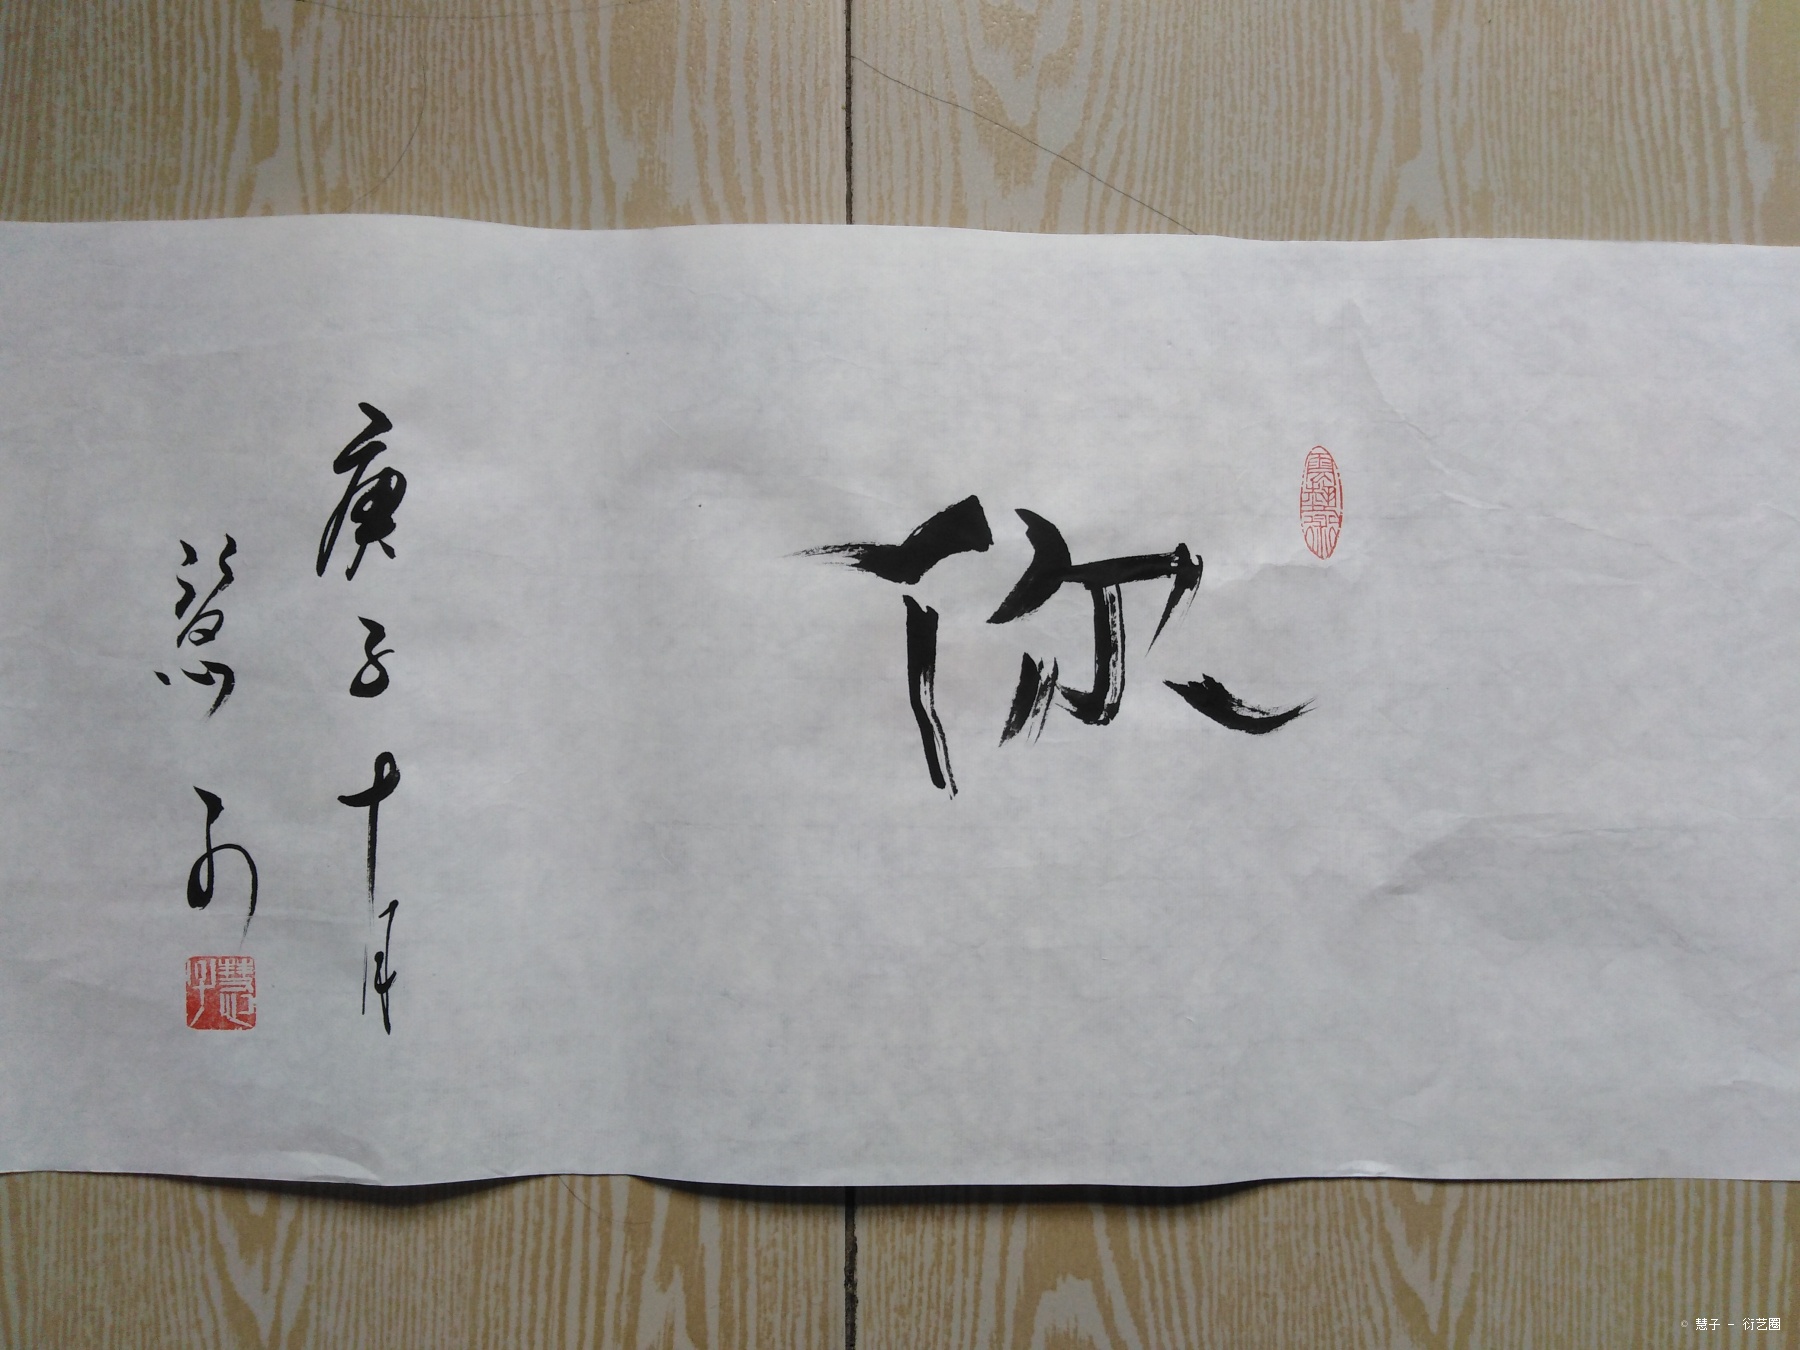 你
庚子十月
慧子
慧子
© 慧子 - 衍艺圈